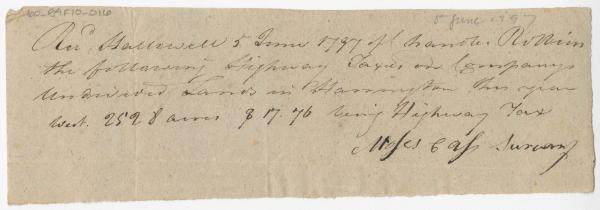 60-RAF10-016
5 June 1797
Recd Hallowell 5 June 1797 of Chandler Robbins
the following Highway Taxes on Companys
Undivided Lands in Harrington this year
West. 2528 acres $17.76 being Highway Tax
Moses Cass Survary